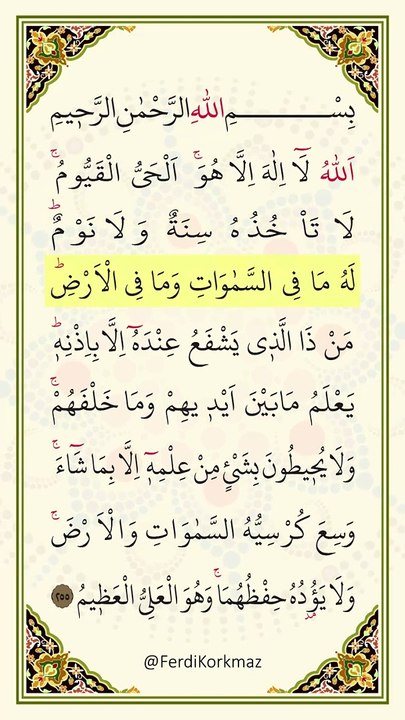 بِسْمِ اللهِ الرَّحْمٰنِ الرَّحٖيمِ
اَللهُ لَٓا اِلٰهَ اِلَّا هُوَۚ اَلْحَىُّ الْقَيُّومُۚ
لَا تَاْخُذُهُ سِنَةٌ وَلَا نَوْمٌؕ
لَهُ مَا فِى السَّمٰوَاتِ وَمَا فِى الْاَرْضِؕ
مَنْ ذَا الَّذٖى يَشْفَعُ عِنْدَهُٓ اِلَّا بِاِذْنِهٖؕ
يَعْلَمُ مَابَيْنَ اَيْدٖيهِمْ وَمَا خَلْفَهُمْۚ
وَلَا يُحٖيطُونَ بِشَىْءٍ مِنْ عِلْمِهٖٓ اِلَّا بِمَا شَٓاءَۚ
وَسِعَ كُرْسِيُّهُ السَّمٰوَاتِ وَالْاَرْضَۚ
وَلَا يَؤُدُهُ حِفْظُهُمَاۚ وَهُوَ الْعَلِىُّ الْعَظٖيمُ ٢٥٥
@FerdiKorkmaz